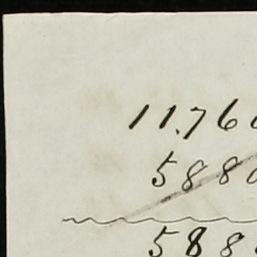 11.76
588
588